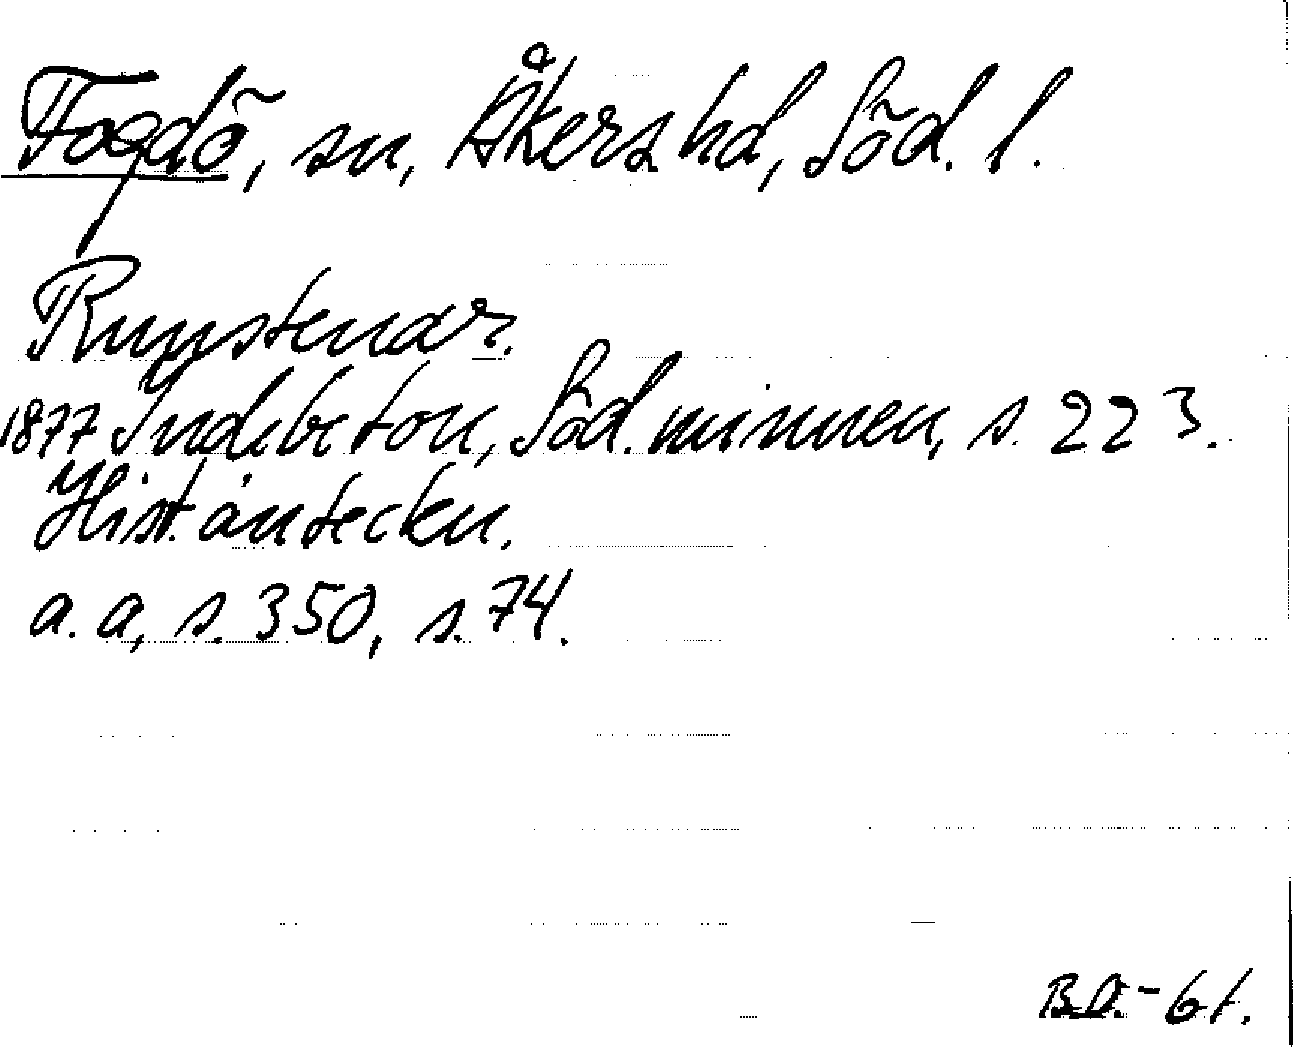 Fogdö, sn, Åkers hd, Söd. l.
Runstenar.
1877 Indebetou, Söd. minnen, s. 223.
Hist. anteckn.
a. a, s. 350, s. 74.
B.D. - 61.